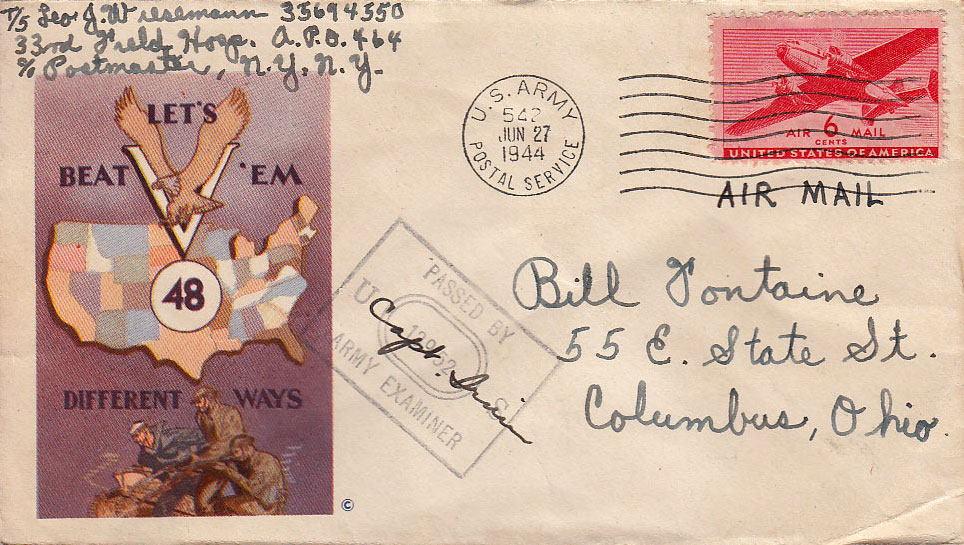 T/5 Leo J. Wieselmann 35694550
33rd Field Hosp. A.P.O. 464
c/o Postmaster, N.Y. N.Y.
LET'S
BEAT V 'EM
48
DIFFERENT WAYS
©
U.S. ARMY
542
JUN 27
1944
POSTAL SERVICE
AIR 6 MAIL
CENTS
UNITED STATES OF AMERICA
AIR MAIL
PASSED BY
U S
ARMY EXAMINER
Capt.
Bill Fontaine
55 E. State St.
Columbus, Ohio.